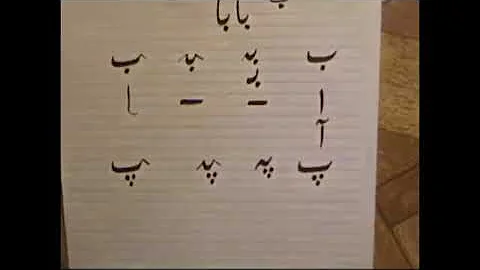 بابا
ب بـ ـبـ ـب
بـ
ا - - ـا
آ
پ پـ ـپـ ـپ